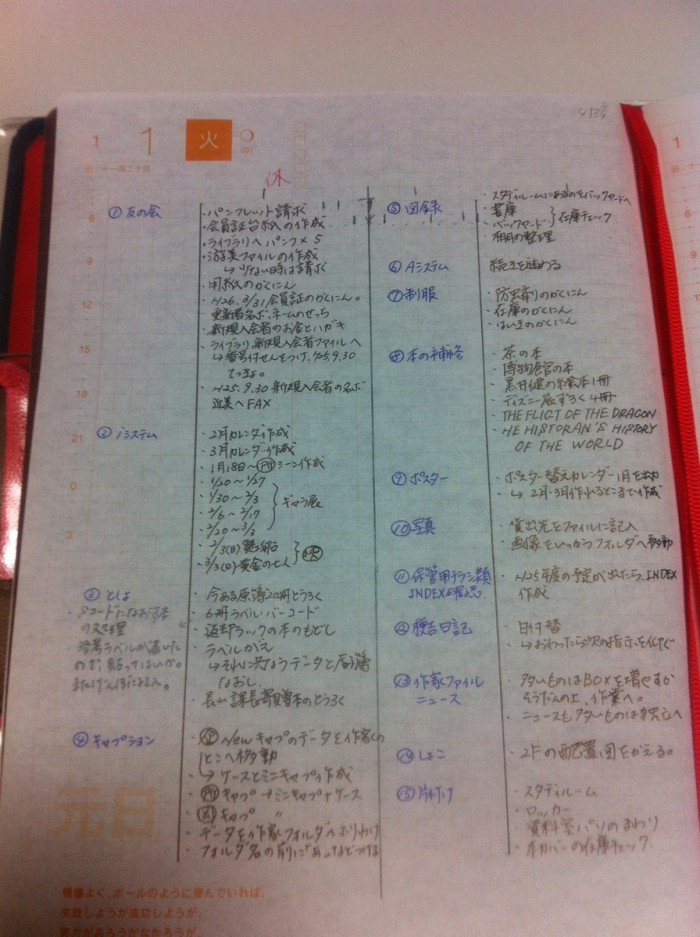 1
1
火
休
6
9
12
15
18
21
0
3
①友の会
・パンフレット請求
・会員証台紙の作成
・ライブラリへパンフ×5
・ファイルの作成
↳少ない時は請求
・用紙のかくにん
・H26.3/31会員証のかくにん。
・新規入会者のお金とハガキ
・ライブラリ新規入会者ファイルへ
↳番号付せんをつけ、H25.9.30
・H25.9.30新規入会者の名ぶ
近美へFAX
②iシステム
・2月カレンダ作成
・3月カレンダ作成
・1月18日〜
シーン作成
・1/20〜1/27
・1/30〜2/3
・2/6〜2/17
・2/20〜3/3
ギャラ展
・3/3(日)黄金のせん
③としょ
・Sコードになおす本
の処理
背番ラベルが届いた
ので、貼ってはいか。
・今ある原簿20冊とうろく
・6冊ラベル・バーコード
・返却ラックの本のもどし
・ラベルがえ
↳それに対なうデータと原簿
なおし
・長山課長寄贈本のとうろく
④キャプション
Newキャプのデータを作家の
とこへ移動
↳ケースとミニキャプ作成
キャプ→ミニキャプ+ケース
キャプ 〃
・データを作家フォルダへふりわけ
・フォルダ名の前に「あ」などつける
元日
機嫌よく、ボールのように弾んでいれば、
失敗しようが成功しようが、
実力があろうがなかろうが、
⑤図録
・スタディルームにあるのをバックヤードへ
・書庫
・バックヤード
在庫チェック
・棚の整理
⑥Aシステム
続きを進める
⑦制服
・防虫剤のかくにん
・在庫のかくにん
・はいきのかくにん
⑧本の補修
・茶の本
・博物館の本
・黒井健の絵本1冊
・ディズニー展ずろく4冊
・THE FLIGT OF THE DRAGON
・HE HISTORAN'S HISTORY
OF THE WORLD
⑨ポスター
・ポスター替えカレンダー1月を出力
↳2月・3月作れるとこまで作成
⑩写真
・貸出先をファイルに記入
・画像をいっかつフォルダへ移動
⑪保管用チラシ類
INDEX
・H25年度の予定が出たら、INDEX
作成
⑫稔吉日記
・日付替
↳おわったら次の指示を仰ぐ
⑬作家ファイル
ニュース
・多いものはBOXを増やすか
そうだんの上、作業へ。
⑭しょこ
・2Fの配置図をかえる。
⑮片付け
・スタディルーム
・ロッカー
・資料室パソのまわり
・本カバーの在庫チェック